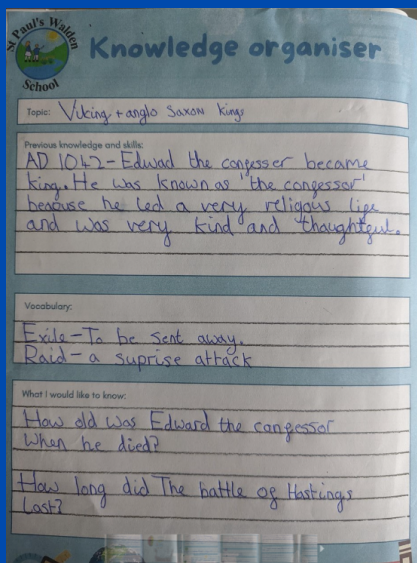 St Paul's Walden
School
Knowledge organiser
Topic: Viking + anglo Saxon Kings
Previous knowledge and skills:
AD 1042 - Edwad the congesser became
king. He was known as 'the congessor'
because he led a very religous lige
and was very kind and thoughtgul.
Vocabulary:
Exile - To be sent away.
Raid - a suprise attack
What I would like to know:
How old was Edward the congessor
When he died?
How long did The battle og Hastings
Last?